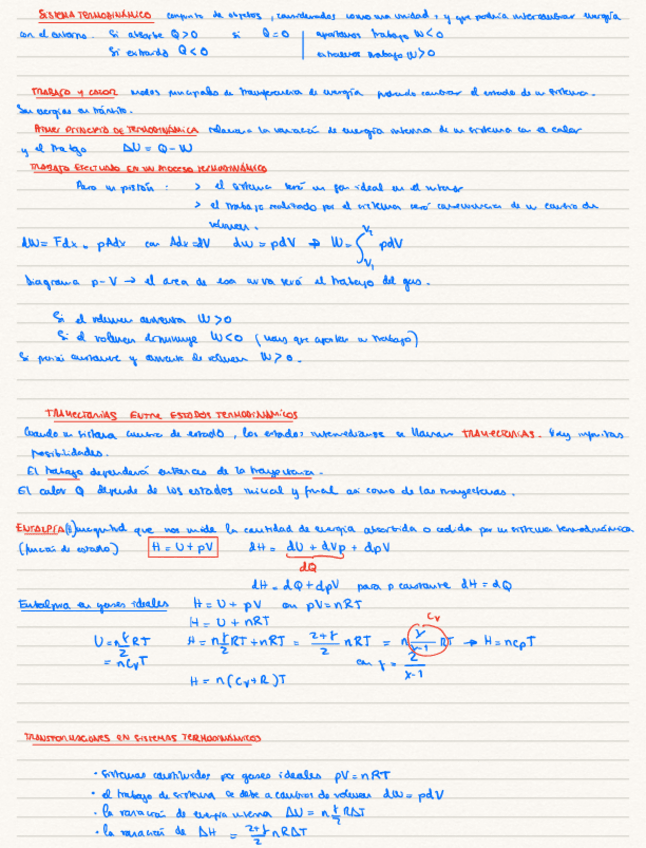 SISTEMA TERMODINÁMICO conjunto de objetos, considerados como una unidad, y que podría intercambiar energía
con el entorno. Si absorbe Q>0 si Q=0 | aportamos trabajo W<0
Si extraído Q<0 | extraemos trabajo W>0
TRABAJO Y CALOR modos principales de transferencia de energía pudiendo cambiar el estado de un sistema.
Son energías en tránsito.
PRINCIPIO DE TERMODINÁMICA relaciona la variación de energía interna de un sistema con el calor
y el trabajo ΔU = Q - W
TRABAJO EFECTUADO EN UN PROCESO TERMODINÁMICO
Para un pistón: > el sistema será un gas ideal en el interior
> el trabajo realizado por el sistema será consecuencia de un cambio de
volumen.
dW = Fdx = pAdx con Adx = dV dW = pdV ⇒ W = ∫_{V₁}^{V₂} pdV
Diagrama p-V → el area de esa curva será el trabajo del gas.
Si el volumen aumenta W>0
Si el volumen disminuye W<0 (hay que aportar un trabajo)
Si presión constante y aumento de volumen W>0.
TRAYECTORIAS ENTRE ESTADOS TERMODINÁMICOS
Cuando un sistema cambia de estado, los estados intermedios se llaman TRAYECTORIAS. Hay infinitas
posibilidades.
El trabajo dependerá entonces de la trayectoria.
El calor Q depende de los estados inicial y final así como de las trayectorias.
ENTALPÍA magnitud que nos mide la cantidad de energía absorbida o cedida por un sistema termodinámico
(función de estado) H = U + pV dH = dU + dVp + dpV
dQ
dH = dQ + dpV para p constante dH = dQ
Entalpia en gases ideales H = U + pV con pV = nRT
H = U + nRT
U = n f/2 RT H = n f/2 RT + nRT = (2+f)/2 nRT = n γ/(γ-1) RT → H = ncpT
= ncvT con f = 2/(γ-1)
H = n(cv+R)T
TRANSFORMACIONES EN SISTEMAS TERMODINÁMICOS
· Sistemas constituidos por gases ideales pV = nRT
· el trabajo de sistema se debe a cambios de volumen dW = pdV
· la variación de energía interna ΔU = n f/2 RΔT
· la variación de ΔH = (2+f)/2 nRΔT